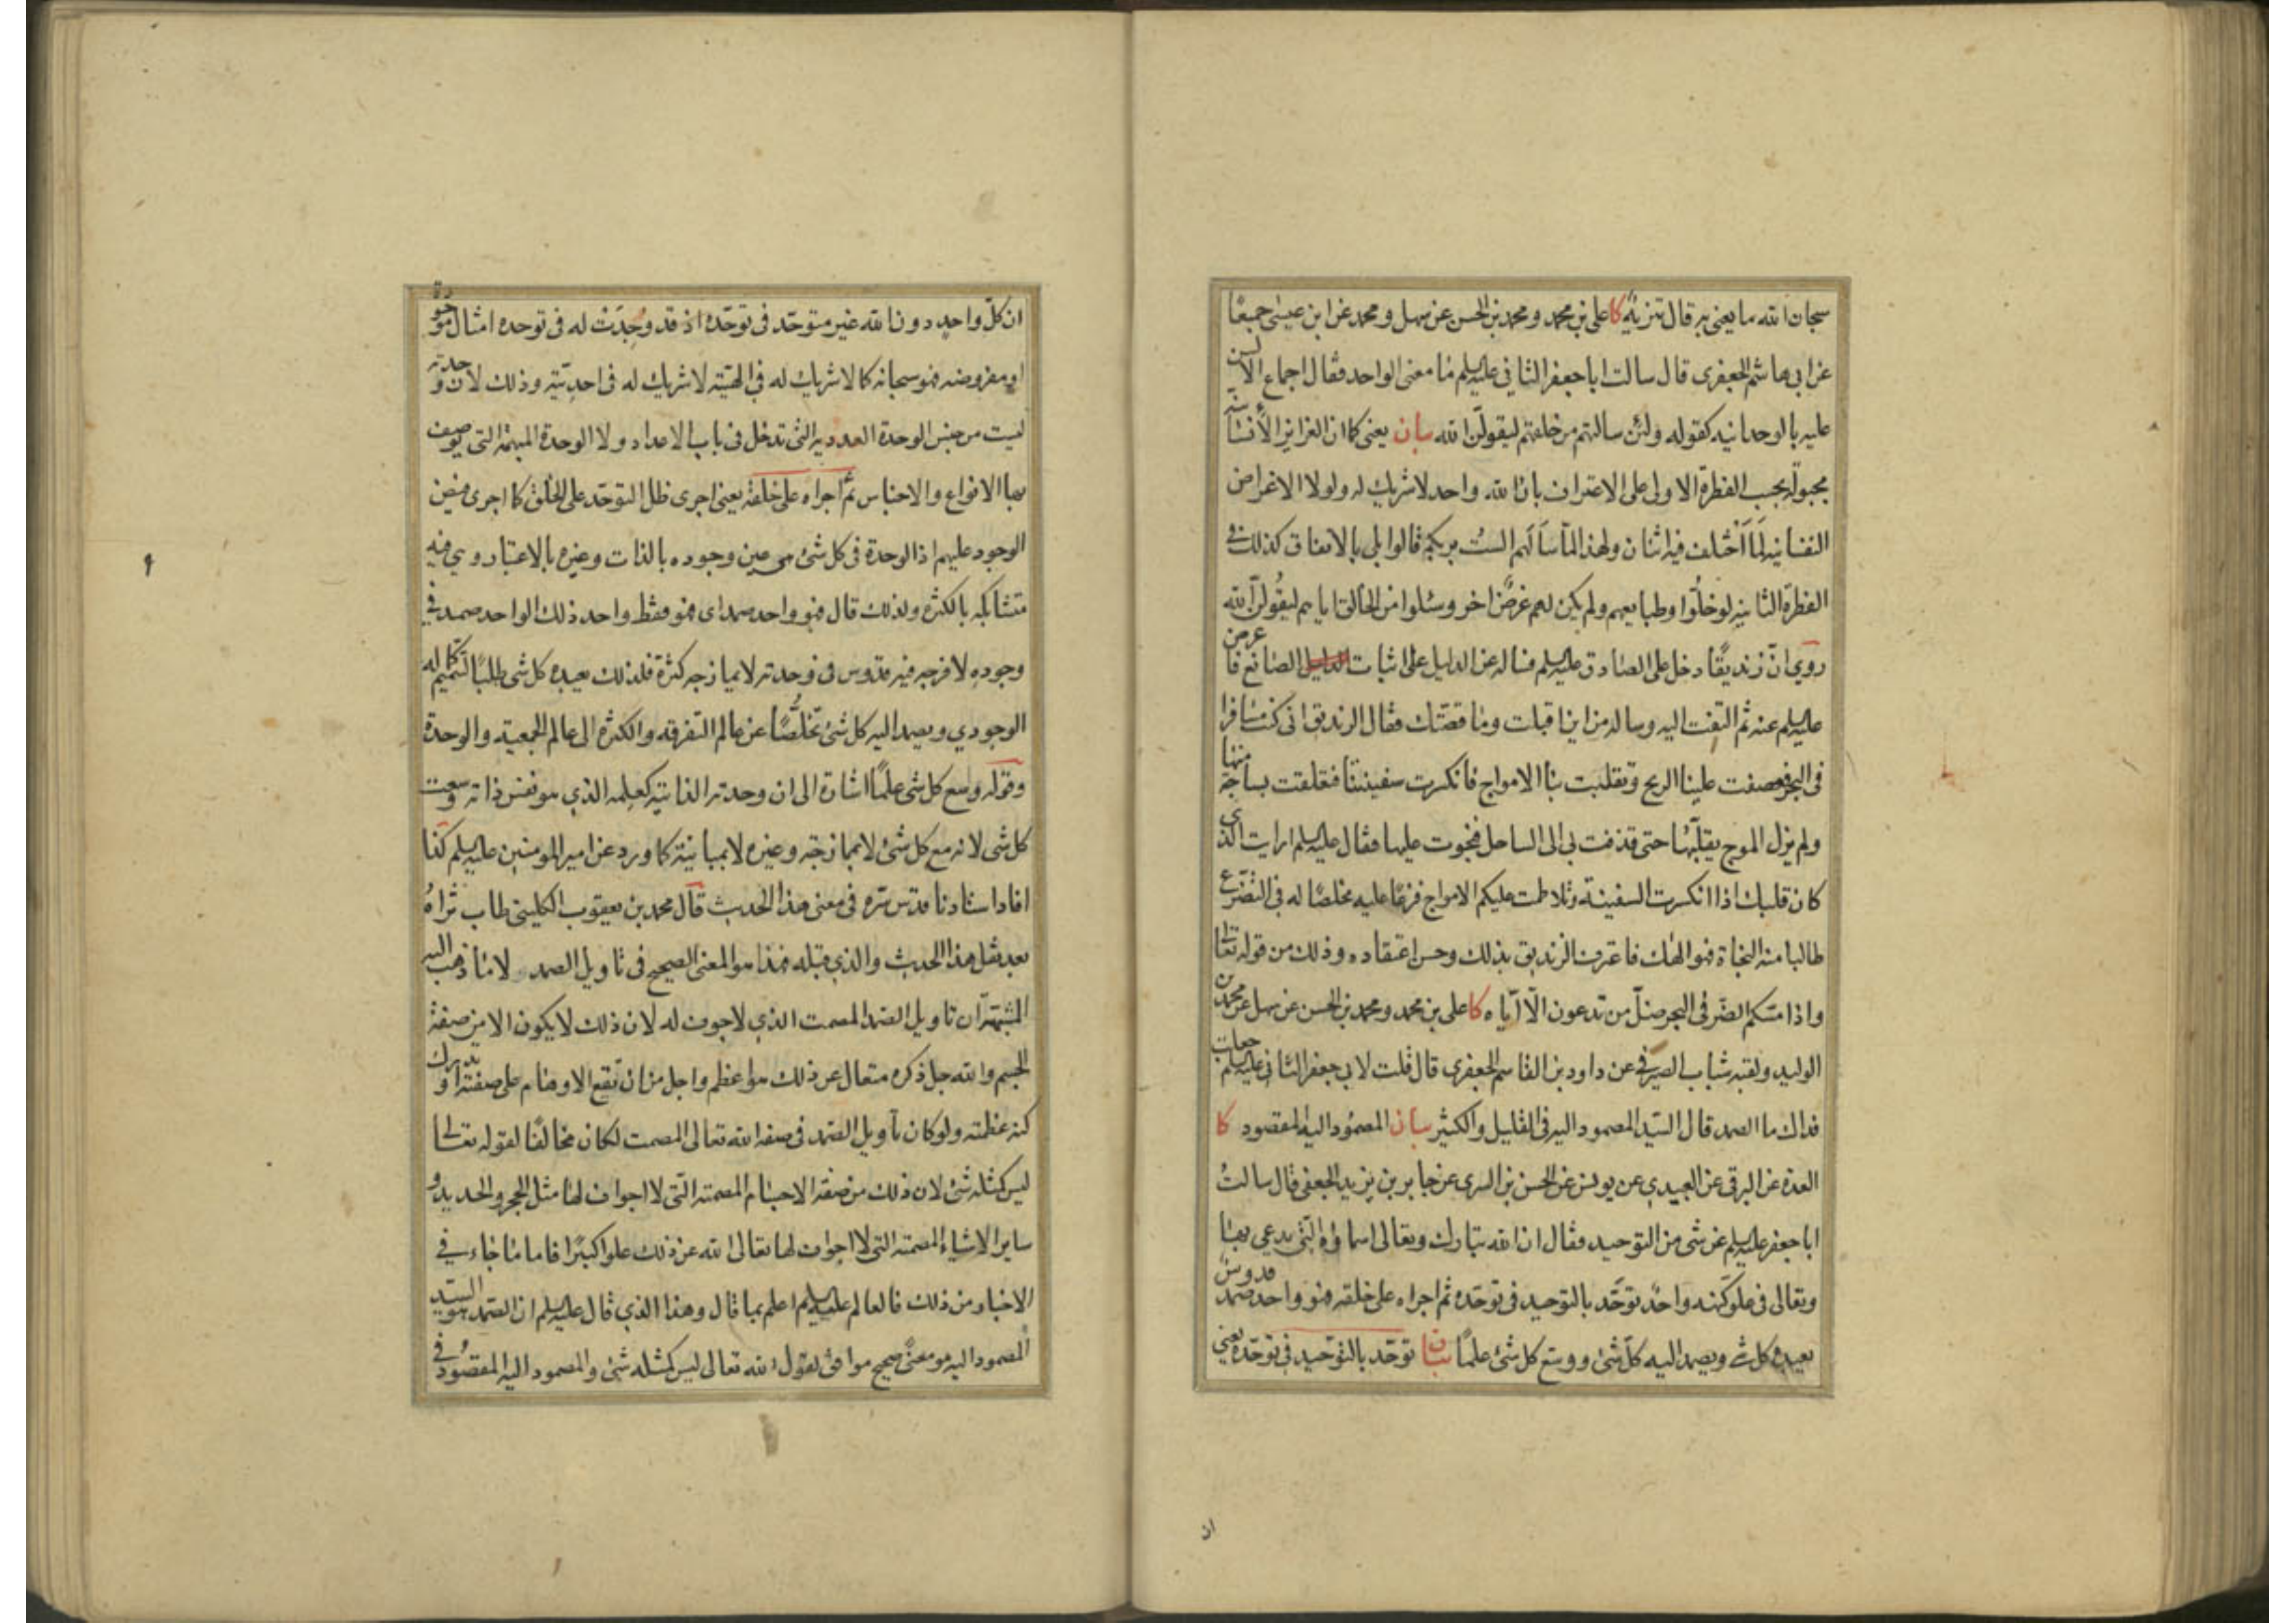 سبحان الله ما يعنى به قال تنزيه كا على بن محمد و محمد بن الحسن عن سهل و محمد عن ابن عيسى جميعًا
عن ابى هاشم الجعفرى قال سالت ابا جعفر الثانى عليه السلم ما معنى الواحد فقال اجماع الالسن
عليه بالوحدانيه كقوله ولئن سالتهم من خلقهم ليقولن الله بيان يعنى كما ان الغرايز الانسانيه
مجبولة بحسب الفطرة الاولى على الاعتراف بان الله واحد لا شريك له ولولا الاغراض
النفسانيه لما اختلف فيه اثنان ولهذا لما سالهم الست بربكم قالوا بلى بالاتفاق كذلك فى
الفطرة الثانيه لو خلوا وطبايعهم ولم يكن لهم غرض اخر وسئلوا من الخالق اياهم ليقولن الله
روي ان زنديقًا دخل على الصادق عليه السلم فساله عن الدليل على اثبات الصانع فاعرض
عليه السلم عنه ثم التفت اليه وساله من اين اقبلت وما قصتك فقال الزنديق انى كنت مسافرا
فى البحر فعصفت علينا الريح وتقلبت بنا الامواج فانكسرت سفينتنا فتعلقت بساجة منها
ولم يزل الموج يقلبها حتى قذفت بى الى الساحل فنجوت عليها فقال عليه السلم ارايت الذى
كان قلبك اذا انكسرت السفينة وتلاطمت عليكم الامواج فزعًا عليه مخلصًا له فى التضرع
طالبا منه النجاة فهو الهك فاعترف الزنديق بذلك وحسن اعتقاده وذلك من قوله تعالى
واذا مسكم الضر فى البحر ضل من تدعون الا اياه كا على بن محمد و محمد بن الحسن عن سهل عن محمد بن
الوليد ولقبه شباب الصيرفى عن داود بن القاسم الجعفرى قال قلت لابى جعفر الثانى عليه السلم جعلت
فداك ما الصمد قال السيد المصمود اليه فى القليل والكثير بيان المصمود اليه المقصود كا
العدة عن البرقى عن العبيدى عن يونس عن الحسن بن السرى عن جابر بن يزيد الجعفى قال سالت
ابا جعفر عليه السلم عن شى من التوحيد فقال ان الله تبارك وتعالى اسماؤه التى يدعى بها
وتعالى فى علو كنهه واحد توحد بالتوحيد فى توحده ثم اجراه على خلقه فهو واحد صمد قدوس
يعبده كل شى ويصمد اليه كل شئ ووسع كل شئ علمًا بيان توحد بالتوحيد فى توحده يعنى
ان
ان كل واحد دون الله غير متوحد فى توحده اذ قد وجدت له فى توحده امثال موجودة
او مفروضه فهو سبحانه كما لا شريك له فى الهيته لا شريك له فى احديته وذلك لان وحدته
ليست من جنس الوحدة العدديه التى تدخل فى باب الاعداد ولا الوحدة المبهمة التى توصف
بها الانواع والاجناس ثم اجراه على خلقه يعنى اجرى ظل التوحد على الخلق كما اجرى فيض
الوجود عليهم اذ الوحدة فى كل شئ هى عين وجوده بالذات وغيره بالاعتبار وهي فيه
متشابكه بالكثره ولذلك قال فهو واحد صمد اى هو فقط واحد ذلك الواحد صمد فى
وجوده لا فرجه فيه قدوس فى وحدته لا يمازجه كثرة فلذلك يعبده كل شى طلبًا لتتميم كماله
الوجودي ويصمد اليه كل شئ تخلصًا عن عالم التفرقه والكثره الى عالم الجمعية والوحدة
وقوله وسع كل شى علمًا اشارة الى ان وحدته الذاتيه كعلمه الذي هو نفس ذاته وسعت
كل شى لانه مع كل شئ لا بممازجة وغيره لا بمباينة كما ورد عن امير المومنين عليه السلم كذا
افاد استادنا قدس سره فى معنى هذا الحديث قال محمد بن يعقوب الكلينى طاب ثراه
بعد نقل هذا الحديث والذي قبله فهذا هو المعنى الصحيح فى تاويل الصمد لا ما ذهب اليه
المشبهة ان تاويل الصمد المصمت الذي لا جوف له لان ذلك لا يكون الا من صفة
الجسم والله جل ذكره متعال عن ذلك هو اعظم واجل من ان تقع الاوهام على صفته او تدرك
كنه عظمته ولو كان تاويل الصمد فى صفة الله تعالى المصمت لكان مخالفًا لقوله تعالى
ليس كمثله شئ لان ذلك من صفه الاجسام المصمته التى لا اجواف لها مثل الحجر والحديد و
ساير الاشياء المصمته التى لا اجواف لها تعالى الله عن ذلك علوا كبيرًا فاما ما جاء فى
الاخبار من ذلك فالعالم عليه السلم اعلم بما قال وهذا الذي قال عليه السلم ان الصمد هو السيد
المصمود اليه هو معنى صحيح موافق لقول الله تعالى ليس كمثله شئ والمصمود اليه المقصود فى